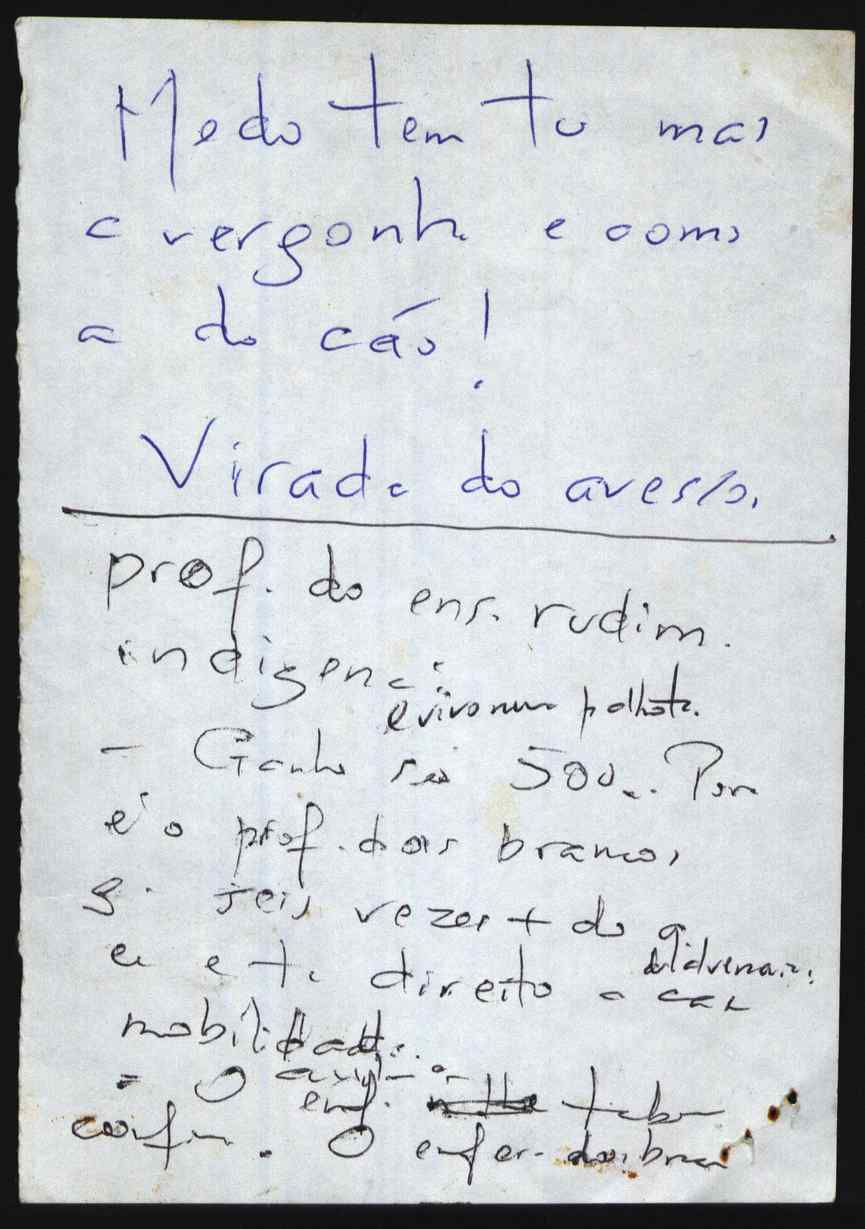 Medo tem tu mas
a vergonha e como
a do cão!
Virada do avesso.
prof. do ens. rudim.
indigena:
e vivo numa palhota.
- Ganho só 500. Por
é o prof. dos brancos
seis vezes + do q
eu e te direito a casa
mobilidade.
= O
enf. tabem
confir. O enfer. dos bran